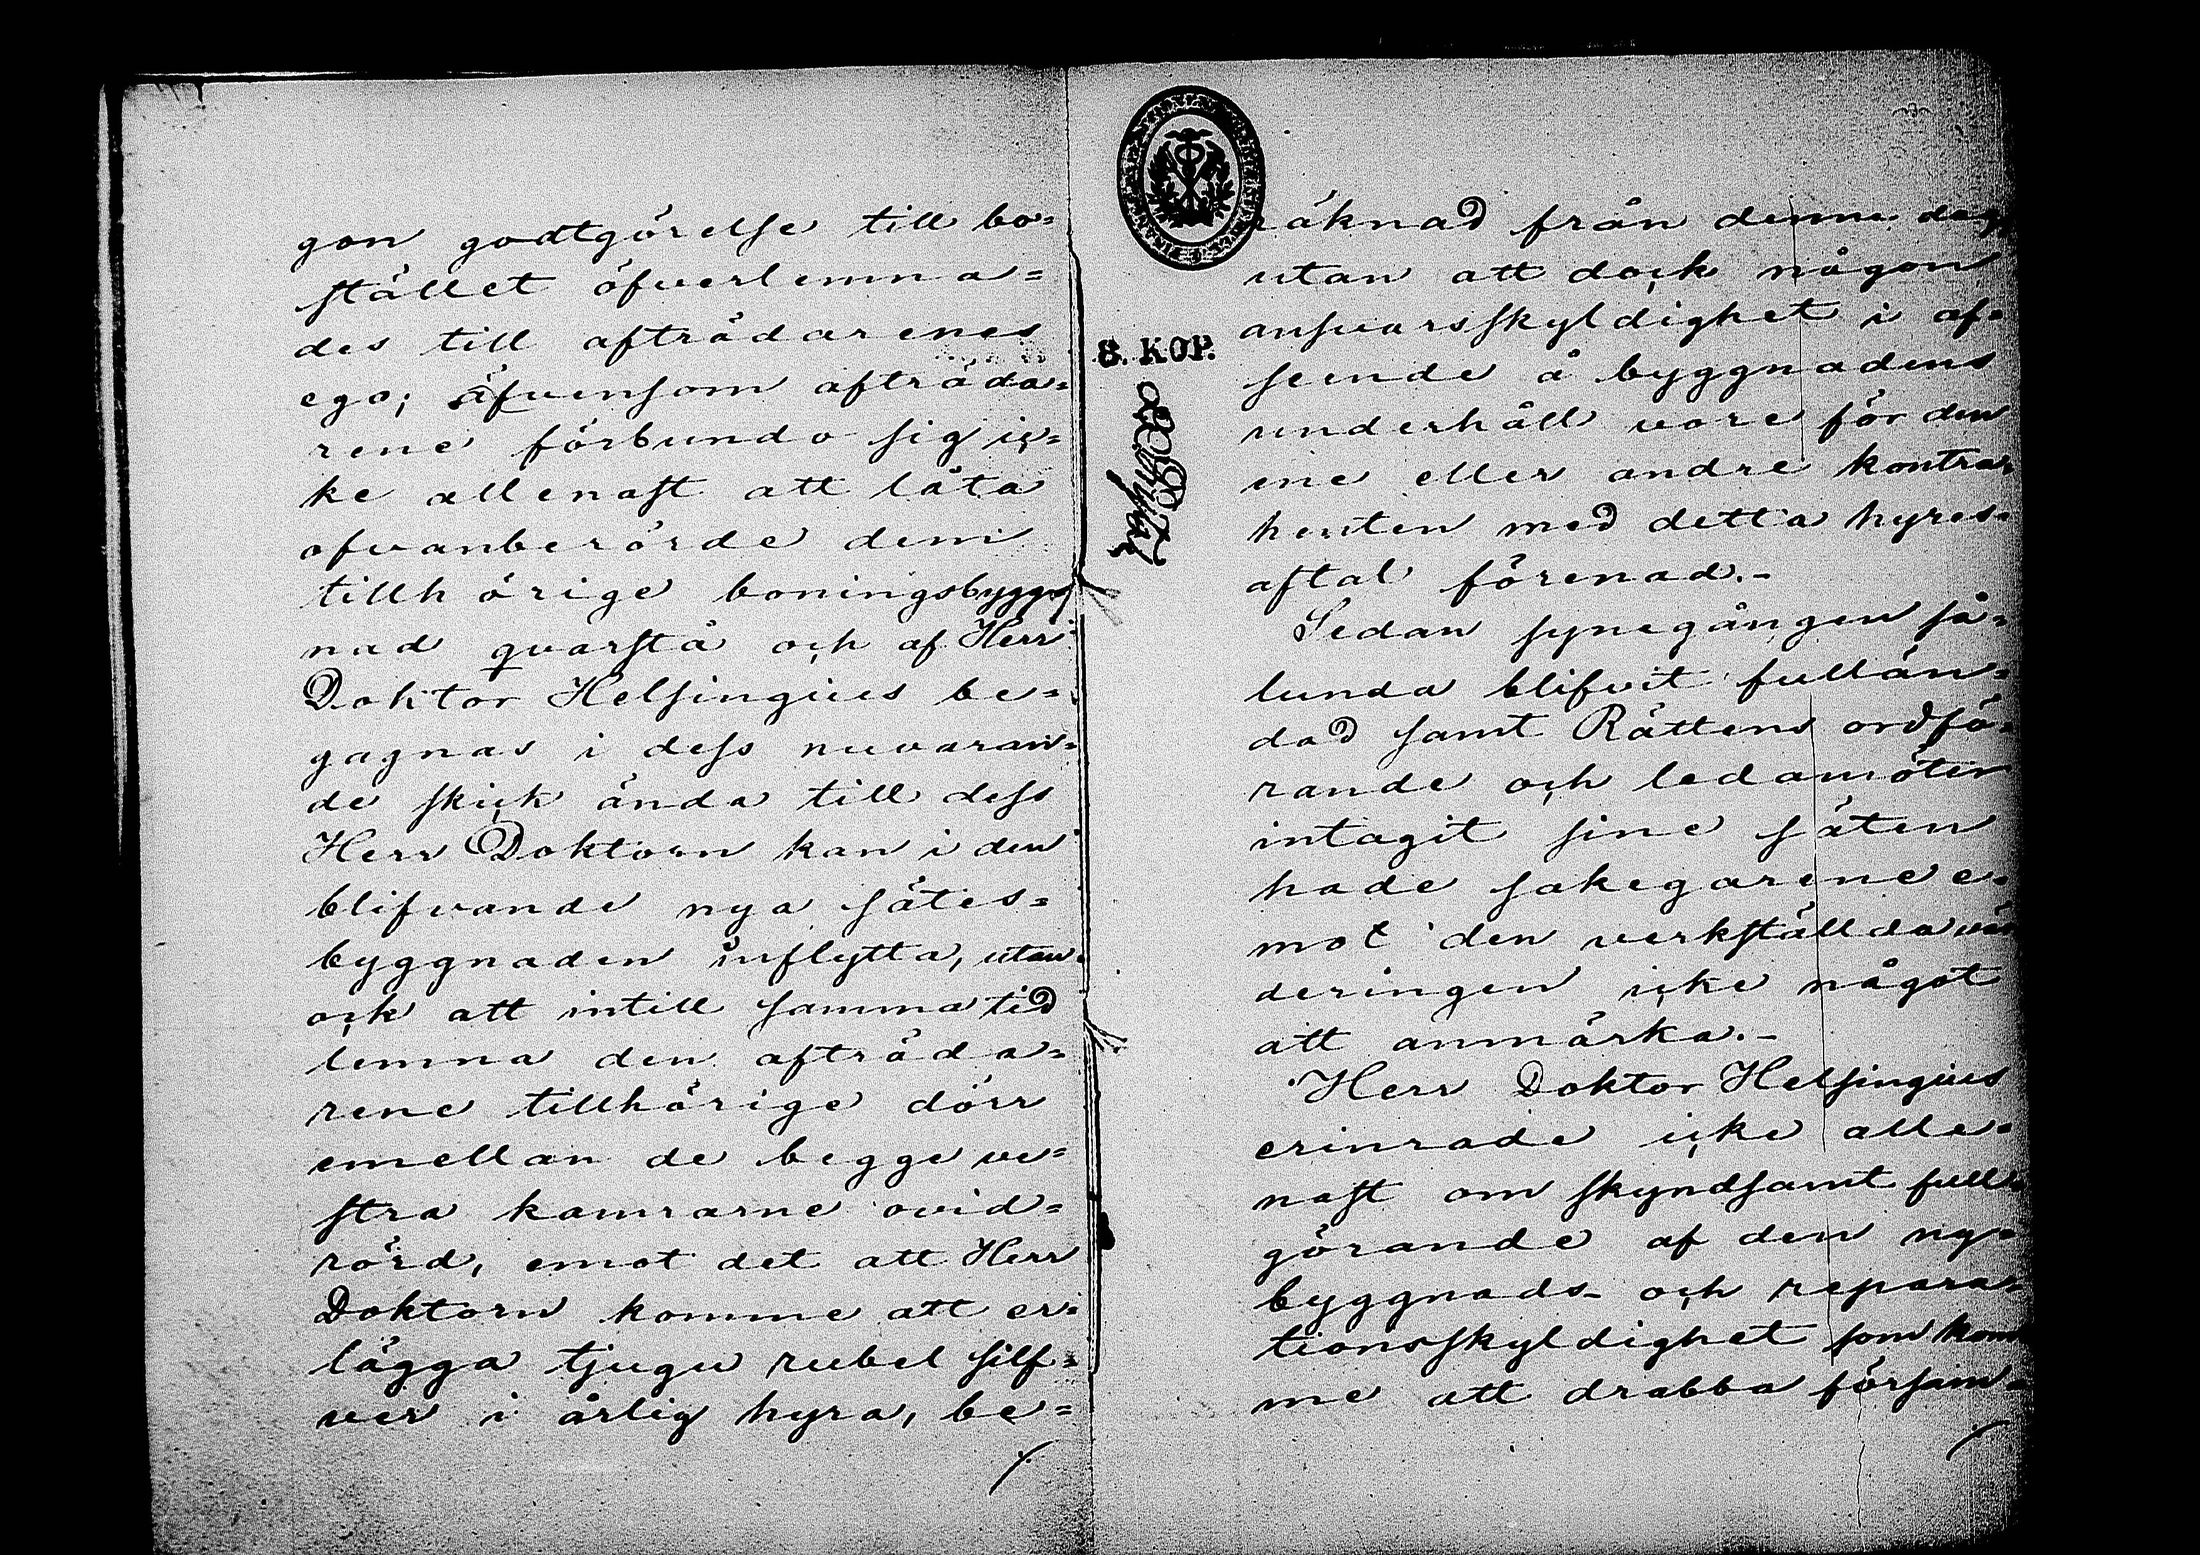 gon godtgörelse till bo=
stället öfverlemna=
des till afträdarenes
ego; äfvensom afträda=
rene förbundo sig ic=
ke allenast att låta
ofvanberörde dem
tillhörige boningsbygg=
nad qvarstå och af Herr
Doktor Helsingius be=
gagnas i dess nuvaran=
de skick ända till dess
Herr Doktorn kan i den
blifvande nya sätes=
byggnaden inflytta, utan
ock att intill samma tid
lemna den afträda=
rene tillhörige dörr
emellan de begge ve=
stra kamrarne ovid=
rörd, emot det att Herr
Doktorn komme att er=
lägga tjugu rubel silf=
ver i årlig hyra, be=
8. KOP.
räknad från denna dag
utan att dock någon
ansvarsskyldighet i af=
seende å byggnadens
underhåll vore för den
ene eller andre kontra=
henten med detta hyres=
aftal förenad.-
Sedan synegången så=
lunda blifvit fullän=
dad samt Rättens ordfö=
rande och ledamöter
intagit sine säten
hade sakegarene e=
mot den verkställda vär
deringen icke något
att anmärka.-
Herr Doktor Helsingius
erinrade icke alle=
nast om skyndsamt full=
görande af den ny=
byggnads- och repara=
tionsskyldighet som kom
me att drabba försam=